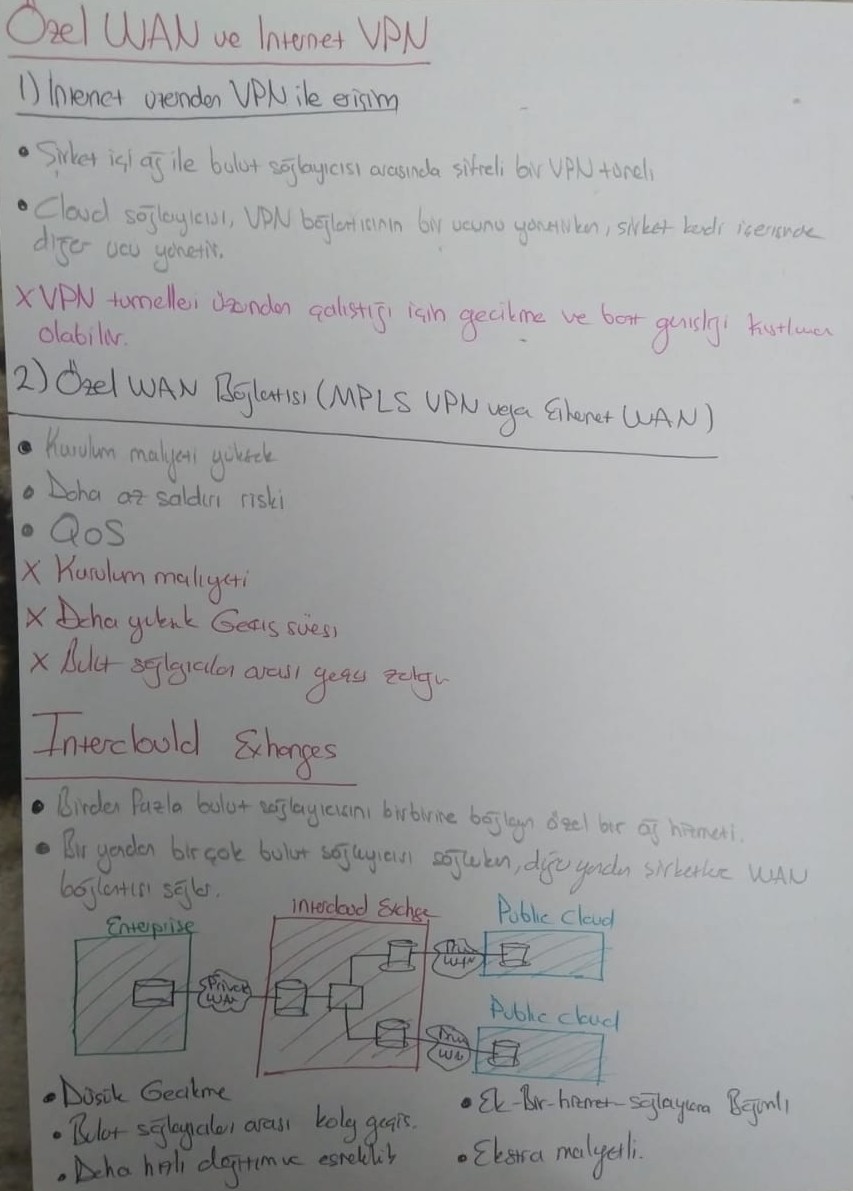 Özel WAN ve Internet VPN
1) Internet üzerinden VPN ile erişim
• Şirket içi ağ ile bulut sağlayıcısı arasında şifreli bir VPN tüneli
• Cloud sağlayıcısı, VPN bağlantısının bir ucunu yönetirken, şirket kendi içerisinde
diğer ucu yönetir.
X VPN tunelleri üzerinden çalıştığı için gecikme ve bant genişliği
olabilir.
2) Özel WAN Bağlantısı (MPLS VPN veya Ethernet WAN)
• Kurulum maliyeti yüksek
• Daha az saldırı riski
• QoS
X Kurulum maliyeti
X Daha yüksek Geçiş süresi
X Bulut sağlayıcılar arası geçiş zorluğu
Intercloud Exhanges
• Birden Fazla bulut sağlayıcısını birbirine bağlayan özel bir ağ hizmeti.
• Bir yandan birçok bulut sağlayıcısı sağlarken, diğer yandan şirketlere WAN
bağlantısı sağlar.
Enterprise
intercloud Exchge
Public Cloud
Private
WAN
WAN
Public cloud
• Düşük Gecikme
• Bulut sağlayıcıları arası kolay geçiş.
• Daha hızlı dağıtım ve esneklik
• Ek-Bir-hizmet-sağlayıcına Bağımlı
• Ekstra maliyetli.